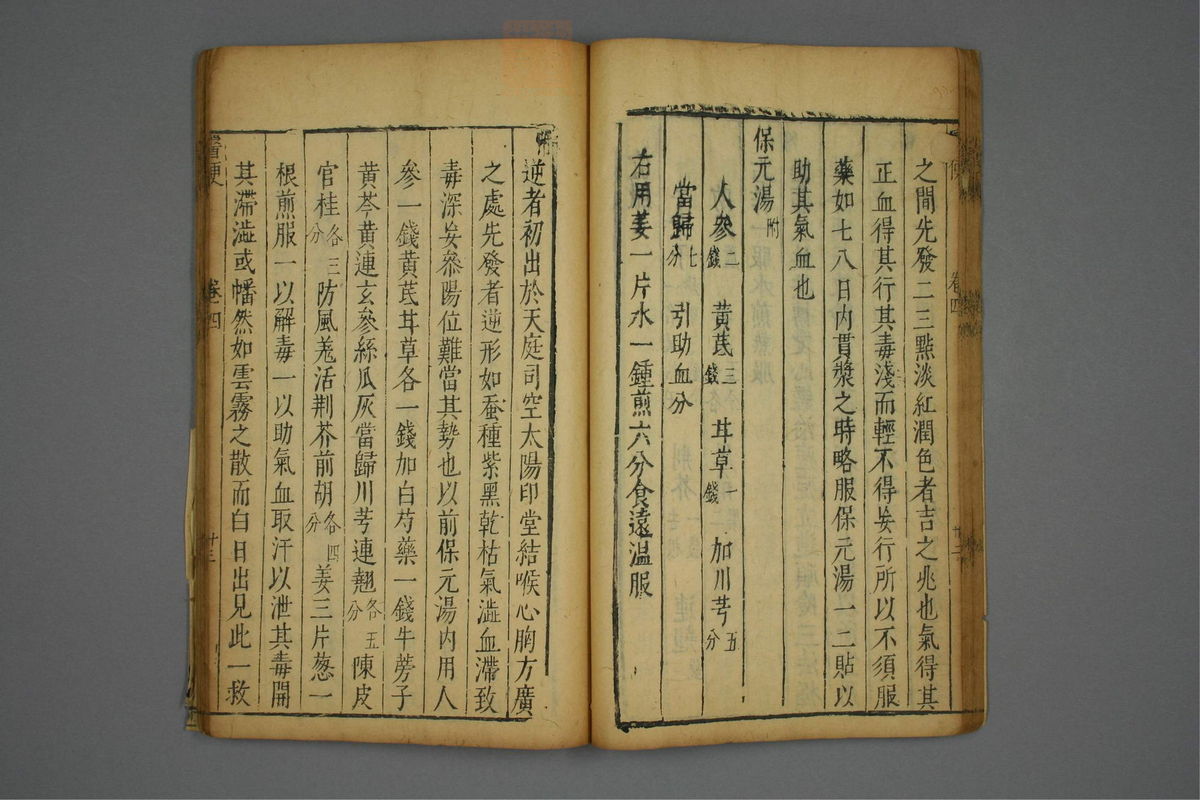 之間先發二三點淡紅潤色者吉之兆也氣得其
正血得其行其毒淺而輕不得妄行所以不須服
藥如七八日內貫漿之時略服保元湯一二貼以
助其氣血也
保元湯附
人參二錢 黃芪三錢 甘草一錢 加川芎五分
當歸七分 引助血分
右用姜一片水一鍾煎六分食遠溫服
逆者初出於天庭司空太陽印堂結喉心胸方廣
之處先發者逆形如蚕種紫黑乾枯氣澁血滯致
毒深妄參陽位難當其勢也以前保元湯內用人
參一錢黃芪甘草各一錢加白芍藥一錢牛蒡子
黃芩黃連玄參絲瓜灰當歸川芎連翹各五分陳皮
官桂各三分防風羗活荆芥前胡各四分姜三片葱一
根煎服一以解毒一以助氣血取汗以泄其毒開
其滯澁或幡然如雲霧之散而白日出見此一救
卷四
十三